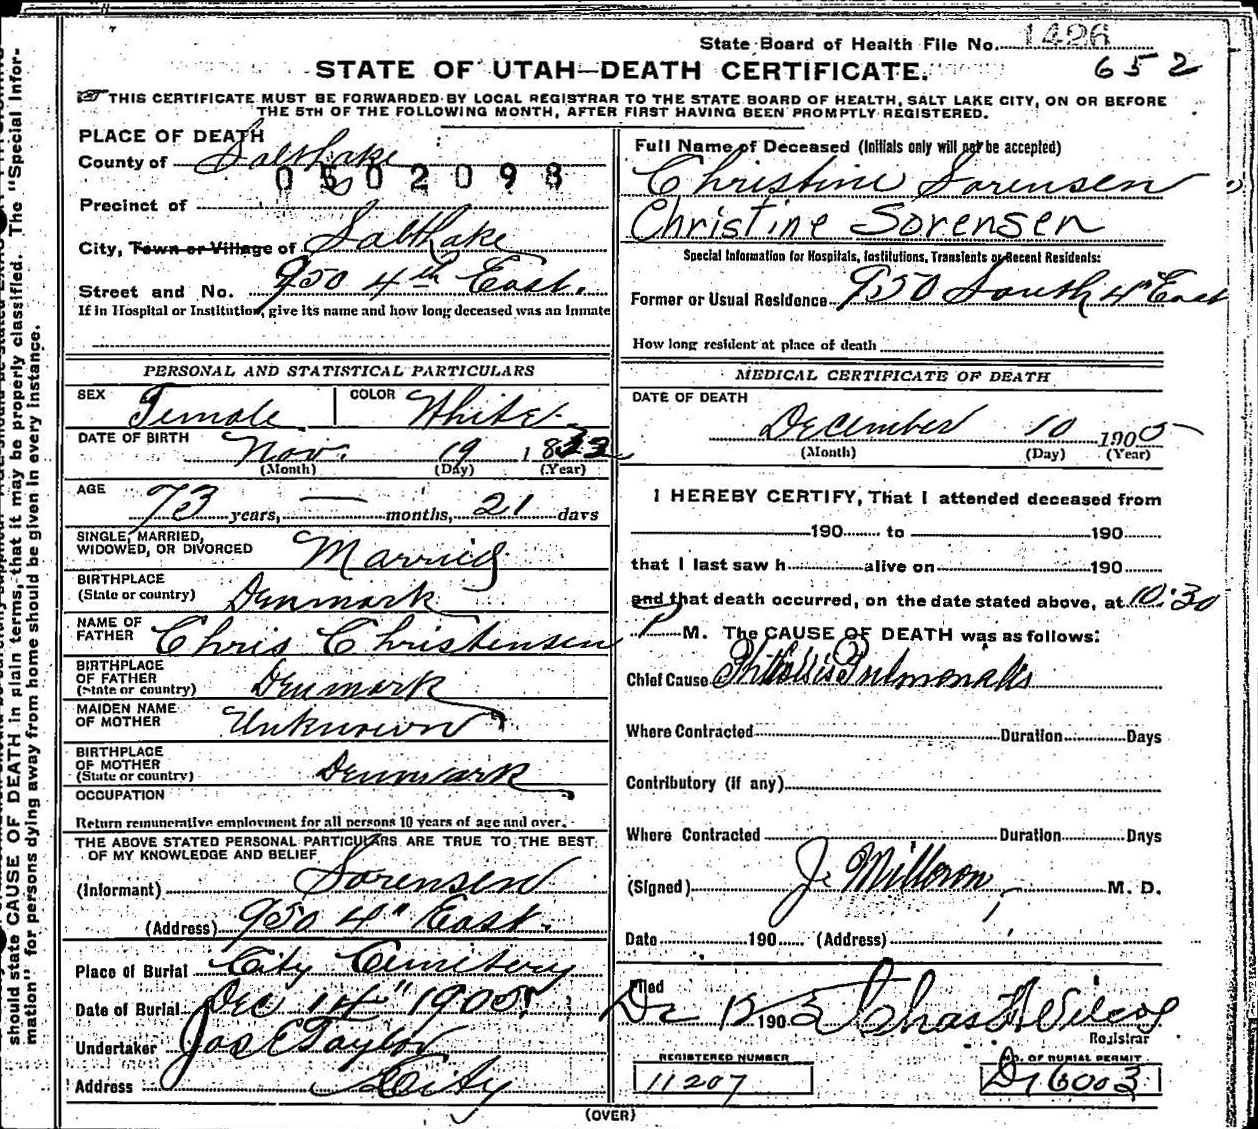 State Board of Health File No. 1426
652
STATE OF UTAH—DEATH CERTIFICATE.
THIS CERTIFICATE MUST BE FORWARDED BY LOCAL REGISTRAR TO THE STATE BOARD OF HEALTH, SALT LAKE CITY, ON OR BEFORE
THE 5TH OF THE FOLLOWING MONTH, AFTER FIRST HAVING BEEN PROMPTLY REGISTERED.
PLACE OF DEATH
County of Salt Lake
0502098
Precinct of
City, Town or Village of Salt Lake
Street and No. 950 4th East.
If in Hospital or Institution, give its name and how long deceased was an inmate
Full Name of Deceased (Initials only will not be accepted)
Christine Sorensen
Christine Sorensen
Special Information for Hospitals, Institutions, Transients or Recent Residents:
Former or Usual Residence 950 South 4" East
How long resident at place of death
PERSONAL AND STATISTICAL PARTICULARS
SEX Female COLOR White
DATE OF BIRTH Nov. 19 18
(Month) (Day) (Year)
AGE 73 years, — months, 21 days
SINGLE, MARRIED,
WIDOWED, OR DIVORCED Married
BIRTHPLACE
(State or country) Denmark
NAME OF
FATHER Chris Christensen
BIRTHPLACE
OF FATHER
(State or country) Denmark
MAIDEN NAME
OF MOTHER Unknown
BIRTHPLACE
OF MOTHER
(State or country) Denmark
OCCUPATION
Return remunerative employment for all persons 10 years of age and over.
THE ABOVE STATED PERSONAL PARTICULARS ARE TRUE TO THE BEST
OF MY KNOWLEDGE AND BELIEF
(Informant) Sorensen
(Address) 950 4" East.
Place of Burial City Cemitery
Date of Burial Dec 14" 1905
Undertaker Jos E Taylor
Address City
MEDICAL CERTIFICATE OF DEATH
DATE OF DEATH
December 10 1905
(Month) (Day) (Year)
I HEREBY CERTIFY, That I attended deceased from
190 to 190
that I last saw h alive on 190
and that death occurred, on the date stated above, at 10:30
P M. The CAUSE OF DEATH was as follows:
Chief Cause Phthisis Pulmonalis
Where Contracted Duration Days
Contributory (if any)
Where Contracted Duration Days
(Signed) J. Milleron M. D.
Date 190 (Address)
Filed
190 Chas Wilcox
Registrar
REGISTERED NUMBER
11207
NO. OF BURIAL PERMIT
6003
(OVER)
should state CAUSE OF DEATH in plain terms, that it may be properly classified. The "Special Infor-
mation" for persons dying away from home should be given in every instance.